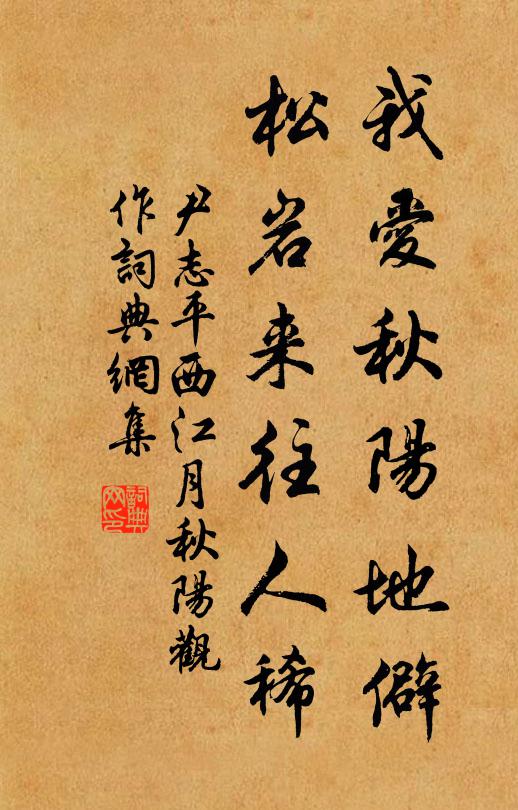 我愛秋陽地僻
松岩来往人稀
尹志平西江月秋陽觀
作詞典網集
詞典
网印